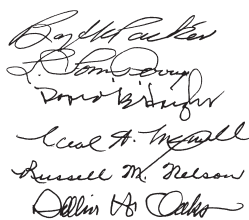 Boyd K. Packer
L. Tom Perry
David B. Haight
Neal A. Maxwell
Russell M. Nelson
Dallin H. Oaks